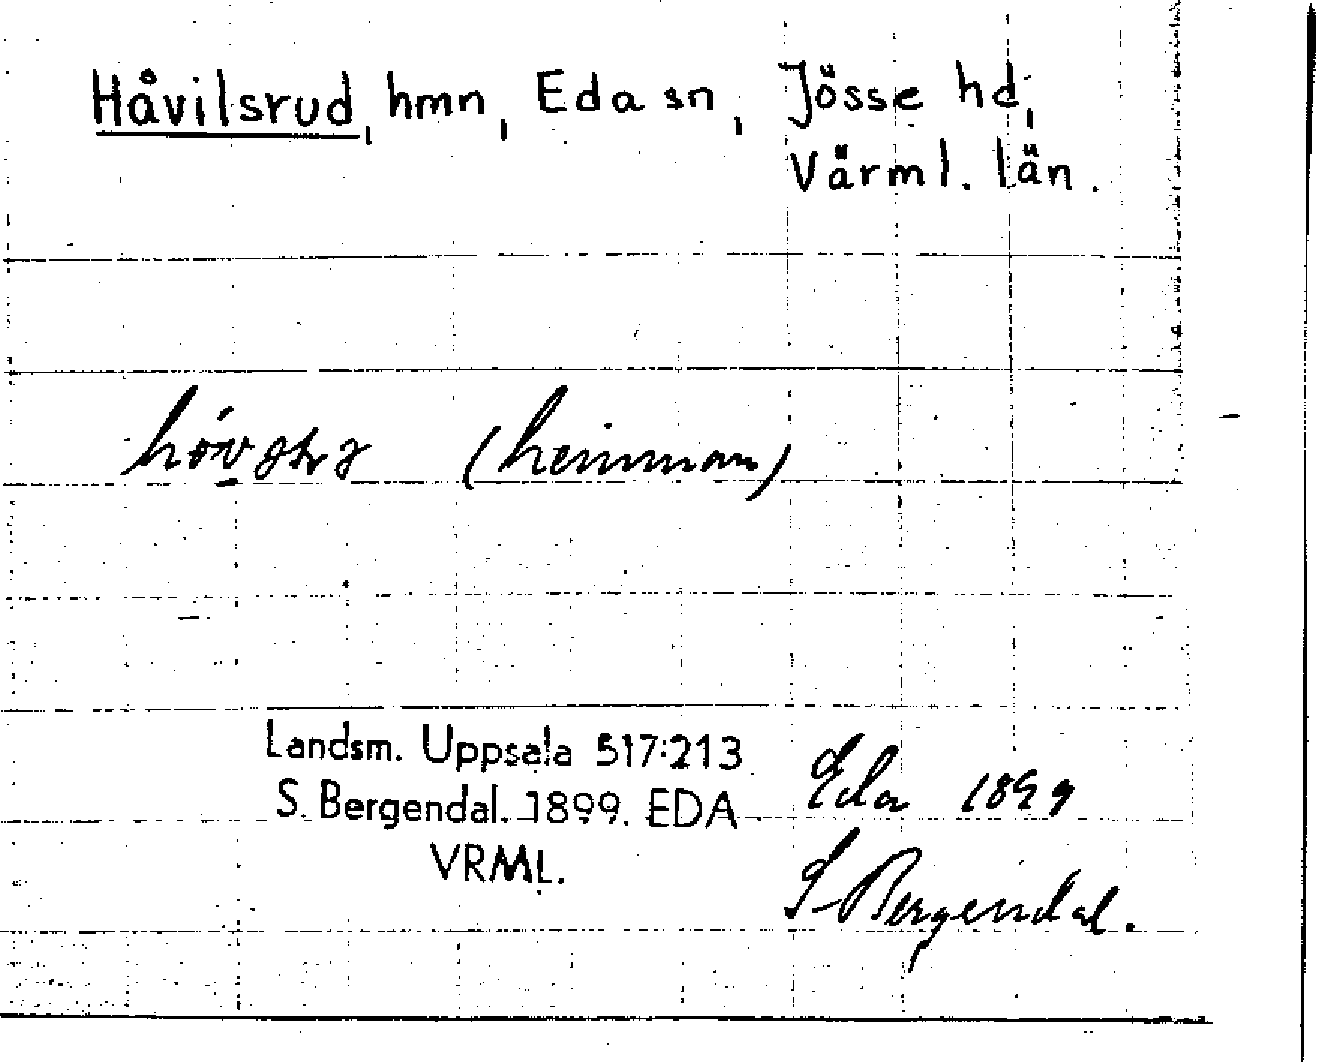 Håvilsrud, hmn, Eda sn, Jösse hd,
Värml. län.
(heimman)
Landsm. Uppsala 517:213
S. Bergendal. 1899. EDA
VRML.
Eda 1899
S Bergendal.